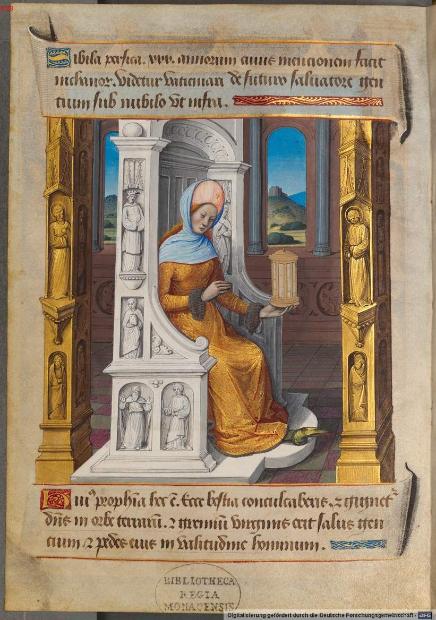 Sibila persica. xxx. annorum cuius mencionem facit
nichanor. Videtur vaticinari de futuro saluatore gen
tium sub nubilo vt infra.
Cui9 prophia hec e. Ecce bestia conculcaberis. & gignet
dns in orbe terrarum. & gremium virginis erit salus gen
cium. & pedes eius in valitudine hominum.
BIBLIOTHECA
REGIA
MONACENSIS
Digitalisierung gefördert durch die Deutsche Forschungsgemeinschaft - DFG